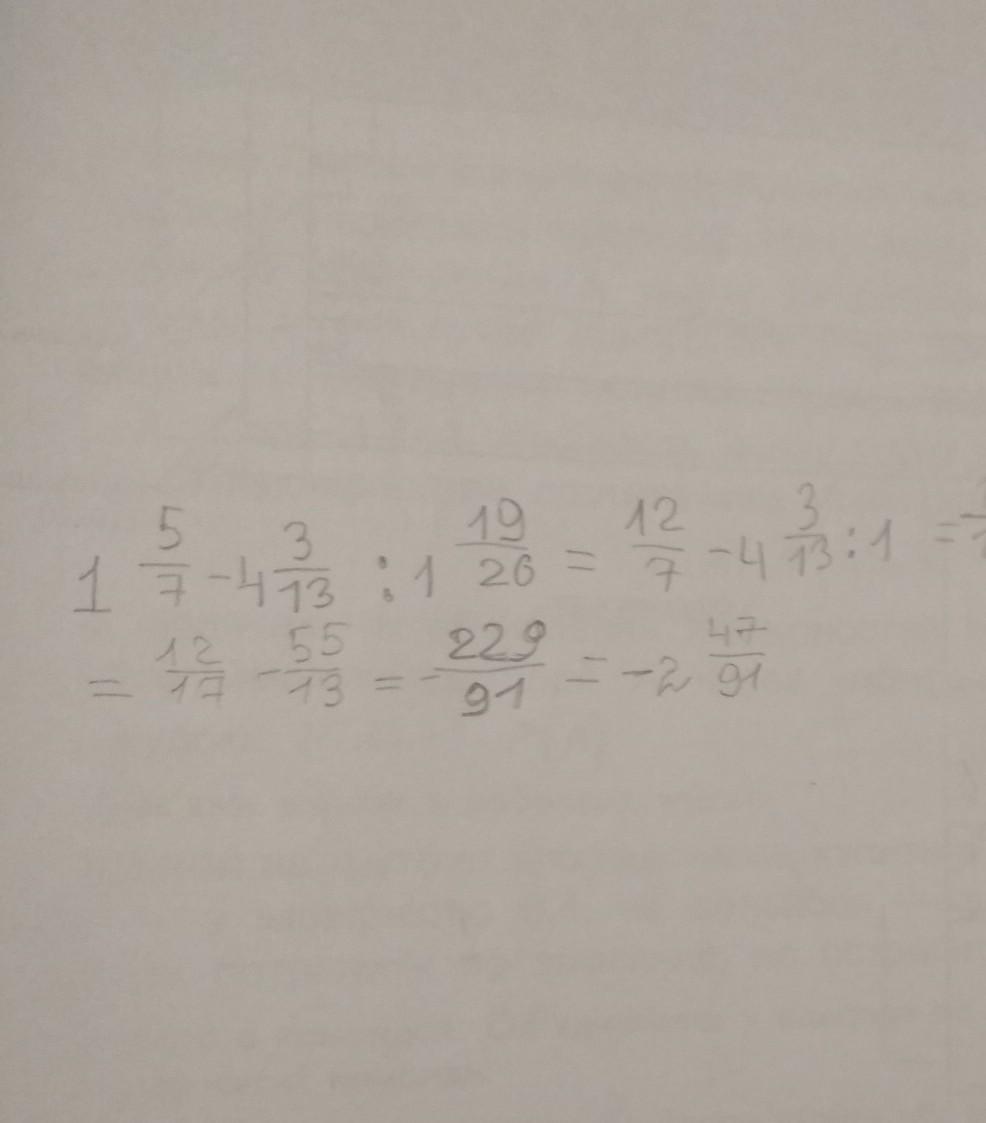 1 5/7 - 4 3/13 : 1 19/26 = 12/7 - 4 3/13 : 1 =
= 12/17 - 55/13 = - 229/91 = -2 47/91